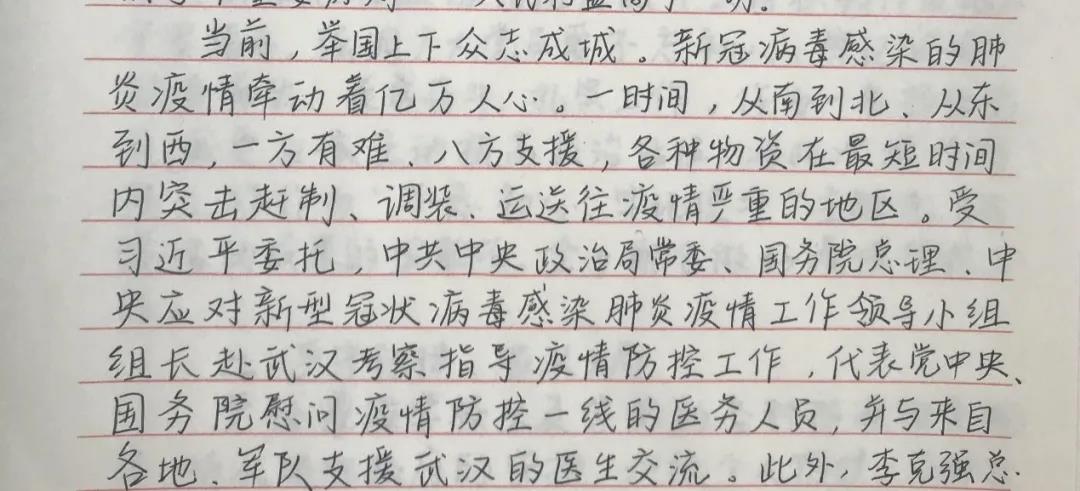 当前，举国上下众志成城。新冠病毒感染的肺
炎疫情牵动着亿万人心。一时间，从南到北、从东
到西，一方有难、八方支援，各种物资在最短时间
内突击赶制、调装、运送往疫情严重的地区。受
习近平委托，中共中央政治局常委、国务院总理、中
央应对新型冠状病毒感染肺炎疫情工作领导小组
组长赴武汉考察指导疫情防控工作，代表党中央、
国务院慰问疫情防控一线的医务人员，并与来自
各地、军队支援武汉的医生交流。此外，李克强总